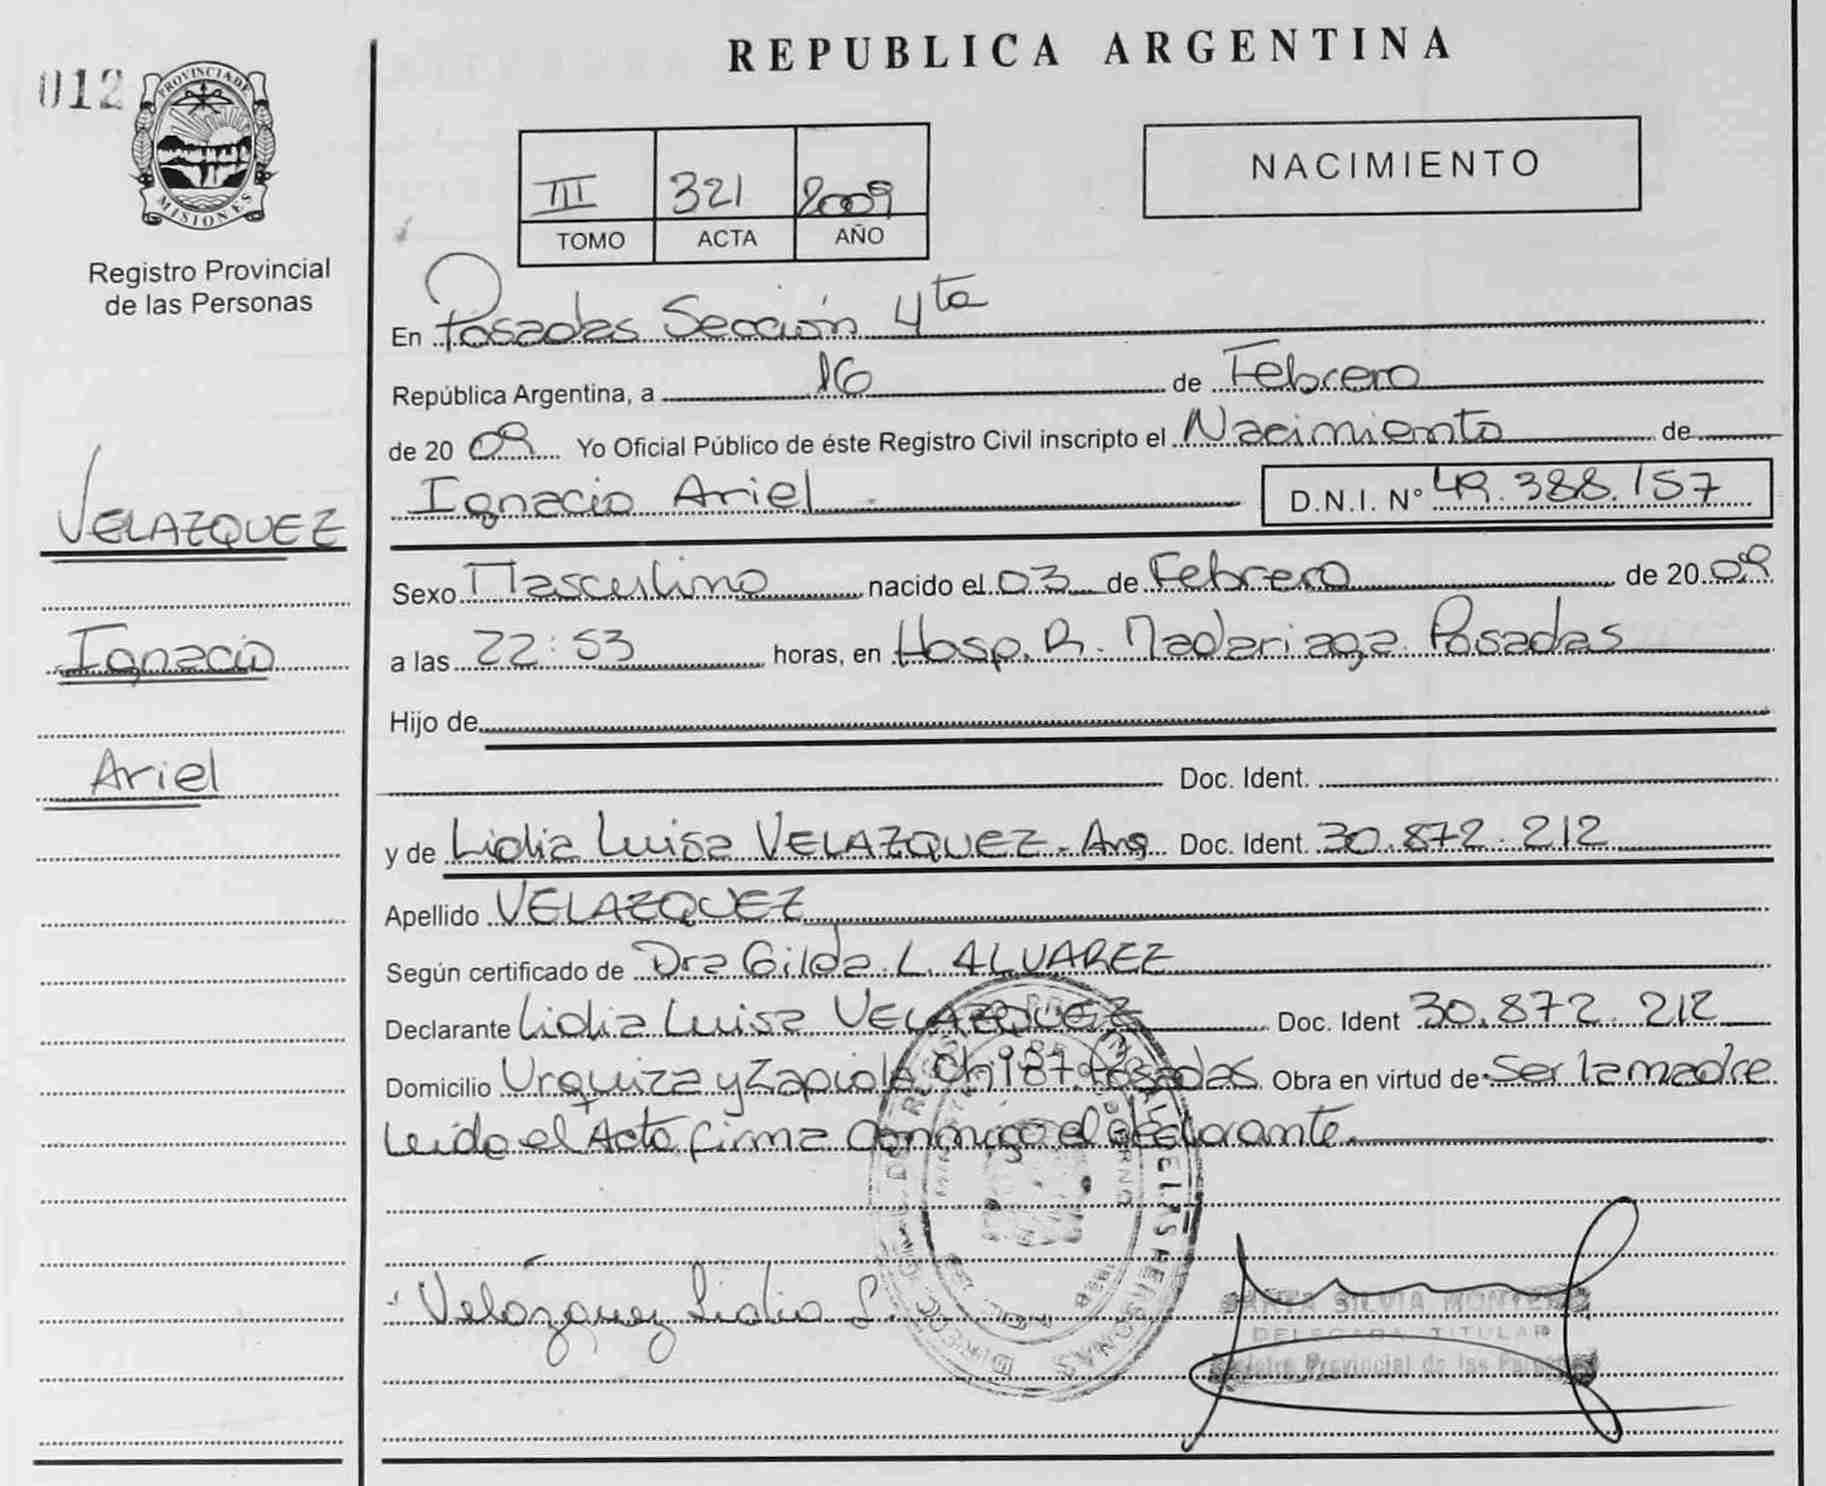 012
PROVINCIA DE
MISIONES
Registro Provincial
de las Personas
VELAZQUEZ
Ignacio
Ariel
REPUBLICA ARGENTINA
III 321 2009
TOMO ACTA AÑO
NACIMIENTO
En Posadas Sección 4ta
República Argentina, a 16 de Febrero
de 20 09 Yo Oficial Público de éste Registro Civil inscripto el Nacimiento de
Ignacio Ariel D.N.I. N° 49.388.157
Sexo Masculino nacido el 03 de Febrero de 20 09
a las 22:53 horas, en Hosp. R. Madariaga. Posadas
Hijo de
Doc. Ident.
y de Lidia Luisa VELAZQUEZ - Arg Doc. Ident. 30.872.212
Apellido VELAZQUEZ
Según certificado de Dra Gilda. L. ALVAREZ
Declarante Lidia Luisa VELAZQUEZ Doc. Ident 30.872.212
Domicilio Urquiza y Zapiola Ch 187 Posadas Obra en virtud de Ser la madre
Leida el Acta firma conmigo el declarante.
Velázquez Lidia L.
SILVIA
DELEGADA TITULAR
Registro Provincial de las Personas